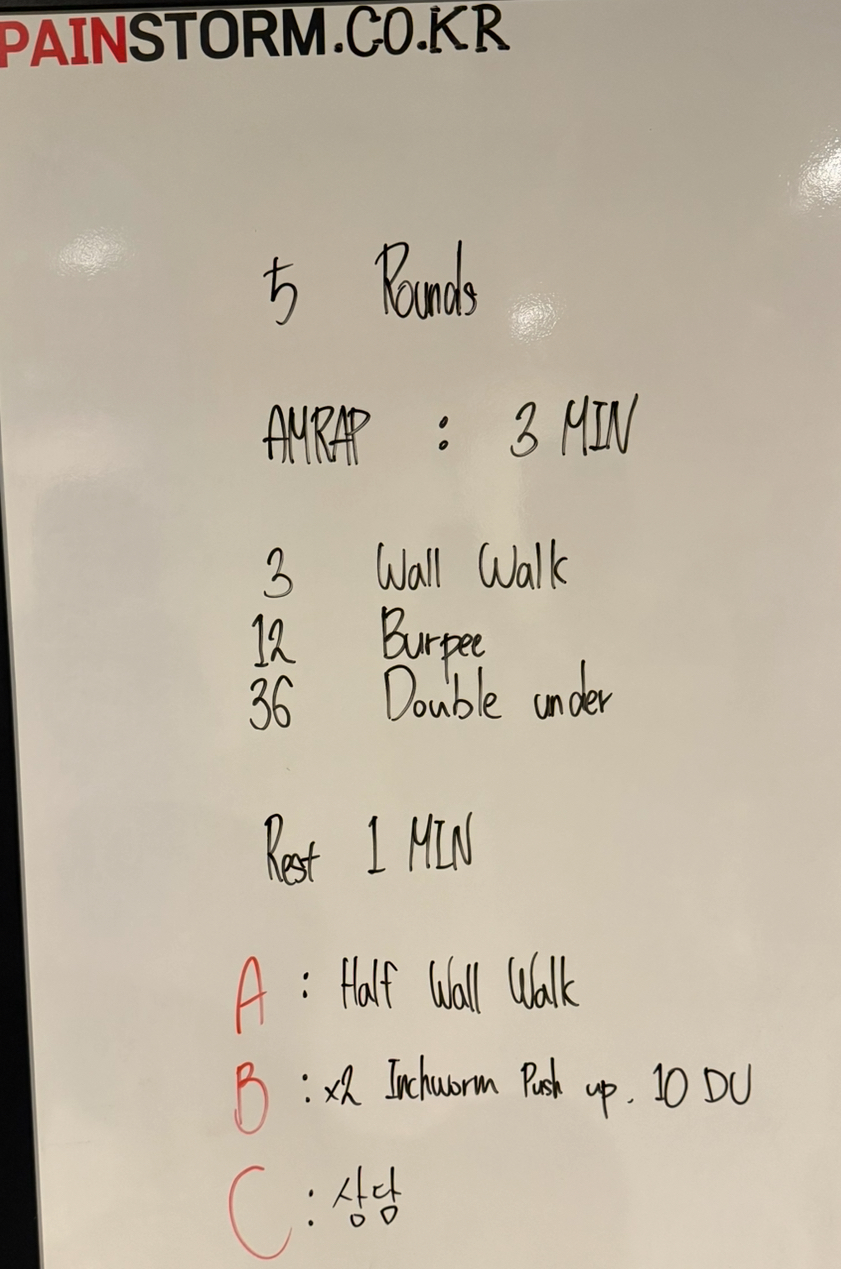 PAINSTORM.CO.KR
5 Rounds
AMRAP : 3 MIN
3 Wall Walk
12 Burpee
36 Double under
Rest 1 MIN
A : Half Wall Walk
B : x2 Inchworm Push up. 10 DU
C : 상당